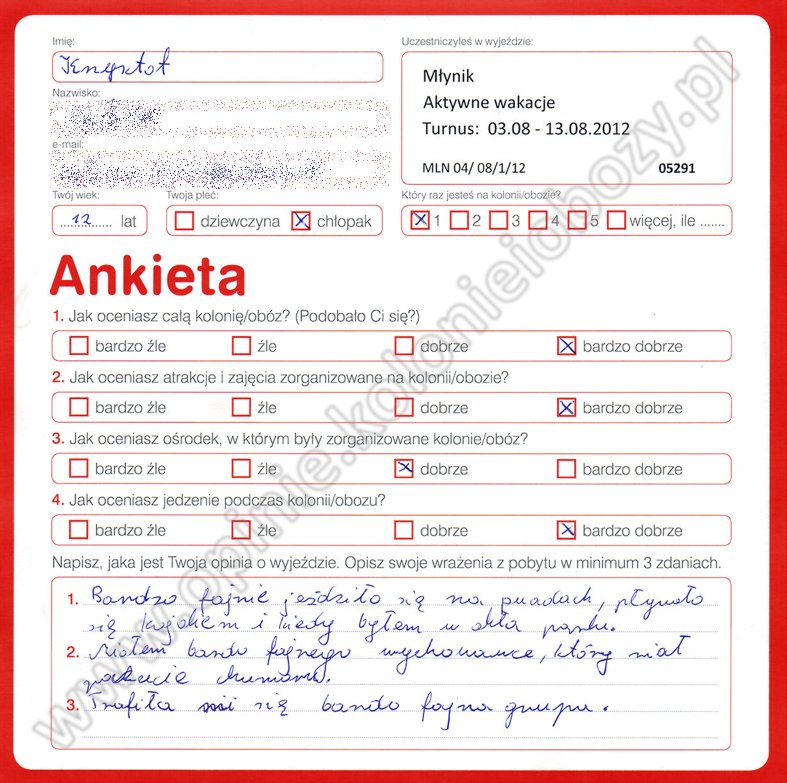 Imię:
Krzysztof
Nazwisko:
e-mail:
Twój wiek:
12 lat
Twoja płeć:
dziewczyna chłopak
Uczestniczyłeś w wyjeździe:
Młynik
Aktywne wakacje
Turnus: 03.08 - 13.08.2012
MLN 04/ 08/1/12 05291
Który raz jesteś na kolonii/obozie?
1 2 3 4 5 więcej, ile .......
Ankieta
1. Jak oceniasz całą kolonię/obóz? (Podobało Ci się?)
bardzo źle źle dobrze bardzo dobrze
2. Jak oceniasz atrakcje i zajęcia zorganizowane na kolonii/obozie?
bardzo źle źle dobrze bardzo dobrze
3. Jak oceniasz ośrodek, w którym były zorganizowane kolonie/obóz?
bardzo źle źle dobrze bardzo dobrze
4. Jak oceniasz jedzenie podczas kolonii/obozu?
bardzo źle źle dobrze bardzo dobrze
Napisz, jaka jest Twoja opinia o wyjeździe. Opisz swoje wrażenia z pobytu w minimum 3 zdaniach.
1. Bardzo fajnie jeździło się na quadach, pływało
się kajakiem i kiedy byłem w parku.
2. Miałem bardo fajnego wychowawce, który miał
humoru.
3. Trafiła mi się bardo fajna grupa.
www.opinie.kolonieiobozy.pl